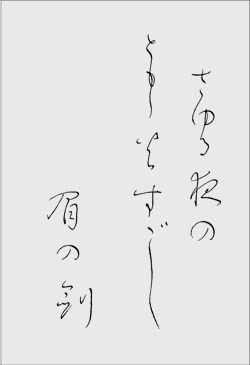 さゆる夜の
ともし火すごし
眉の剣